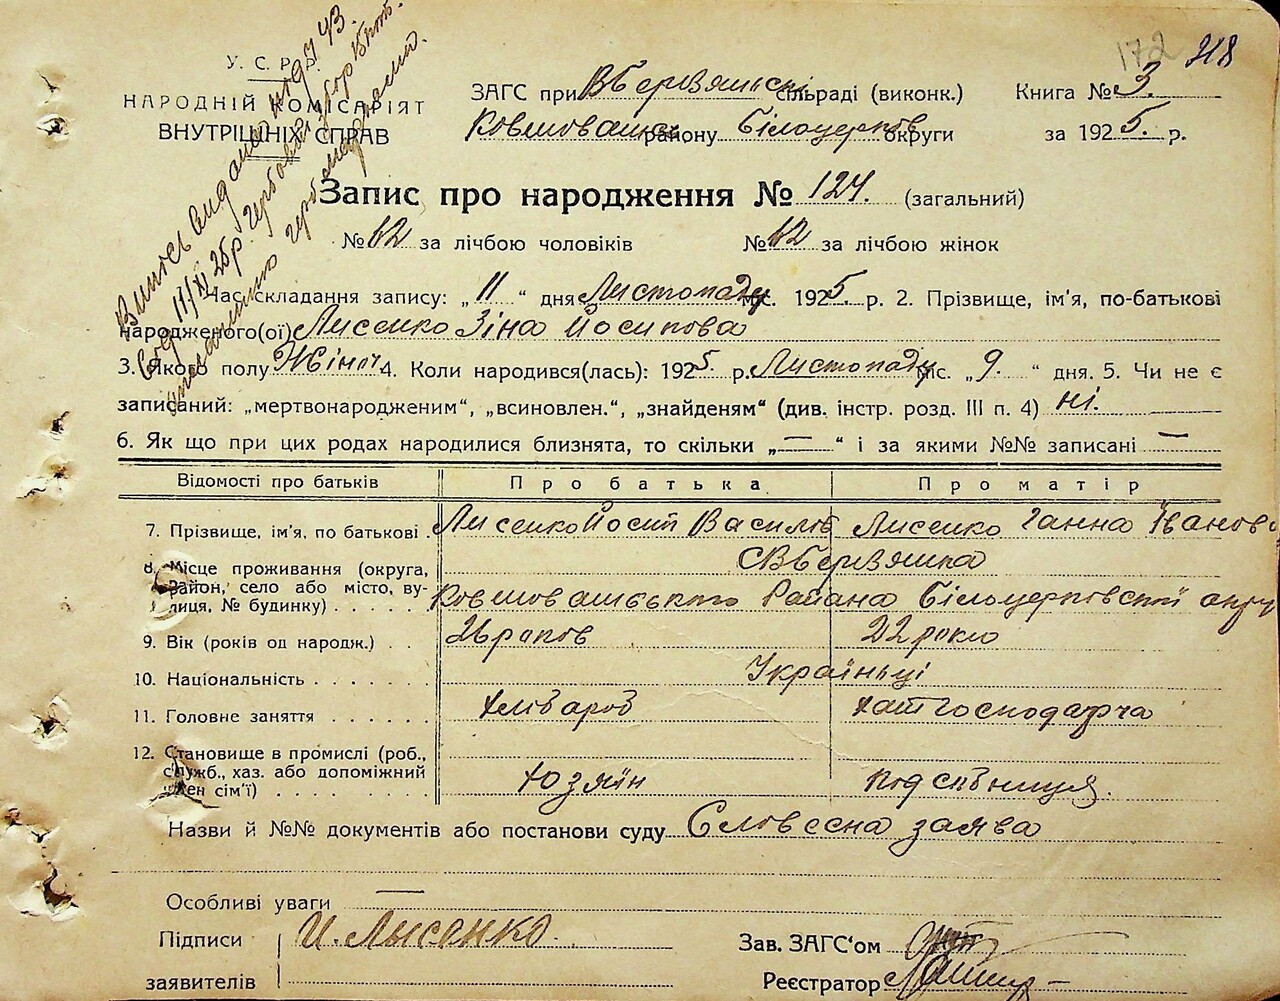 172 218
У. С. Р. Р.
НАРОДНІЙ КОМІСАРІЯТ
ВНУТРІШНІХ СПРАВ
Випись видано
ЗАГС при В Бервянськ сільраді (виконк.) Книга № 3.
району Білоцерков округи за 1925. р.
Запис про народження № 124. (загальний)
№ 62 за лічбою чоловіків № 62 за лічбою жінок
Час складання запису: „11“ дня Листопаду міс. 1925. р. 2. Прізвище, ім'я, по-батькові
народженого(ої) Лисенко Зіна Йосипова
3. Якого полу Жіноч 4. Коли народився(лась): 1925 р. Листопаду міс. „9.“ дня. 5. Чи не є
записаний: „мертвонародженим“, „всиновлен.“, „знайденям“ (див. інстр. розд. III п. 4) ні.
6. Як що при цих родах народилися близнята, то скільки „—“ і за якими №№ записані —
Відомості про батьків Про батька Про матір
7. Прізвище, ім'я, по батькові Лисенко Йосип Василів Лисенко Ганна Іванов
8. Місце проживання (округа, СВБервянка
район, село або місто, ву-
лиця, № будинку) Району Білоцерковської округ
9. Вік (років од народж.) 26 років 22 роки
10. Національність Українці
11. Головне заняття Хлібороб Хатгосподарча
12. Становище в промислі (роб.,
служб., хаз. або допоміжний
член сім'ї) Хозяїн Подсобниця.
Назви й №№ документів або постанови суду Словесна заява
Особливі уваги —
Підписи И. Лысенко.
заявителів
Зав. ЗАГС'ом
Реєстратор